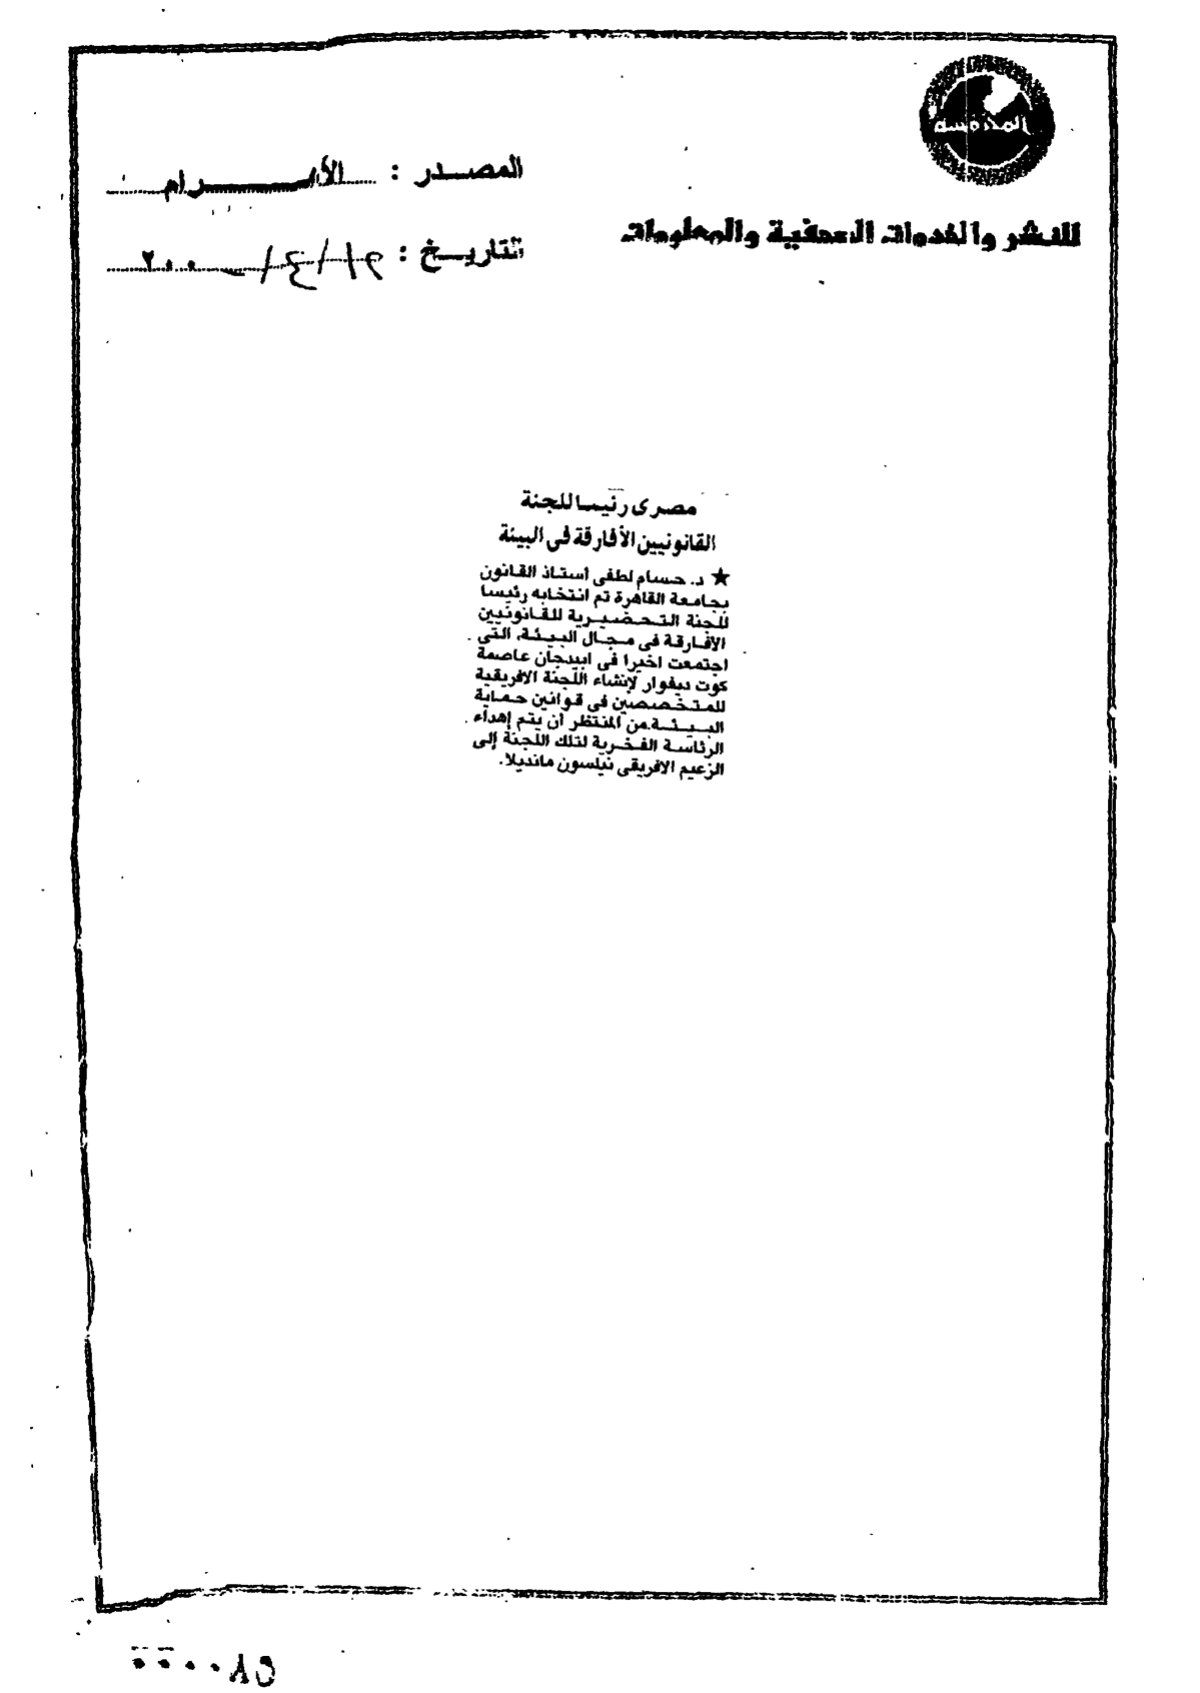 للنشر والخدمات الصحفية والمعلومات
المصدر : الأهرام
التاريخ : ٢٠٠٠
مصرى رئيسا للجنة
القانونيين الأفارقة فى البيئة
★ د. حسام لطفى أستاذ القانون
بجامعة القاهرة تم انتخابه رئيسا
للجنة التحضيرية للقانونيين
الافارقة فى مجال البيئة، التى
اجتمعت اخيرا فى ابيدجان عاصمة
كوت ديفوار لإنشاء اللجنة الافريقية
للمتخصصين فى قوانين حماية
البيئة.من المنتظر ان يتم إهداء
الرئاسة الفخرية لتلك اللجنة إلى
الزعيم الافريقى نيلسون مانديلا.